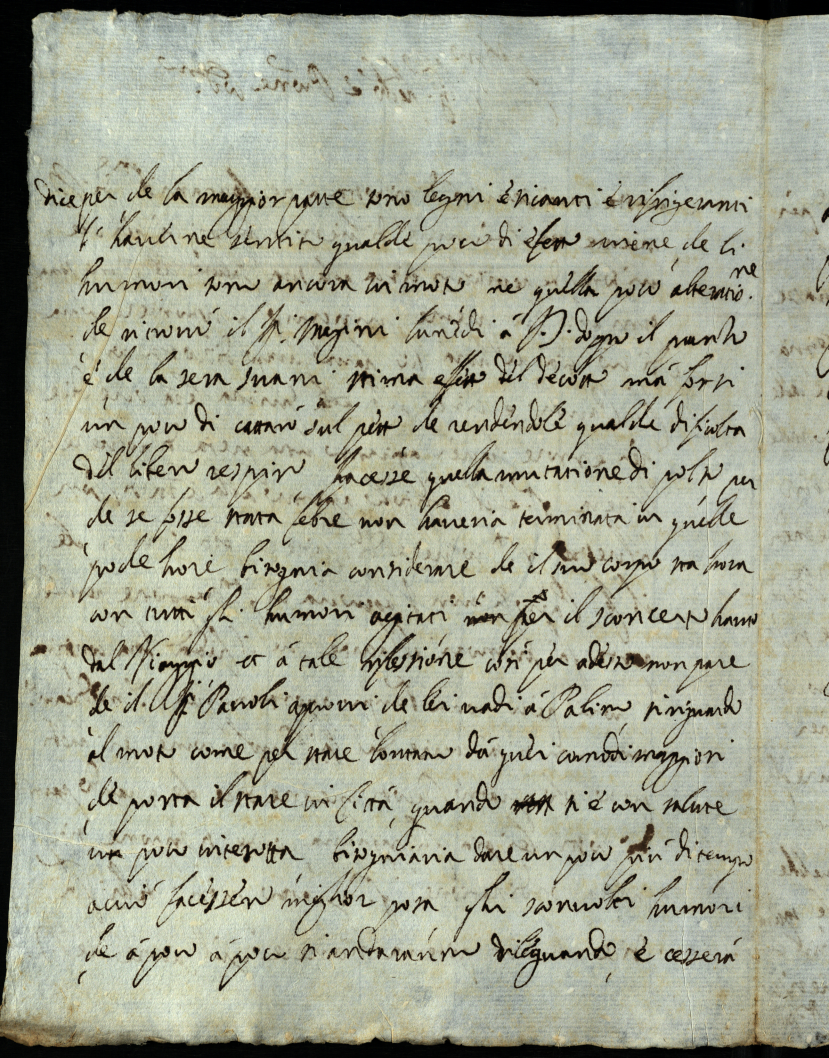 dice per che la maggior parte sono legni essicanti è rifrigeranti
haverne sentito qualche poco di efetto insieme, che li
humori sono ancora in moto ne quella poca alteratio.ne
che ritrovò il Sr. Magini lunedì à
è che la sera stima effetto del decotto mà forsi
un poco di cattaro sul petto che rendendole qualche dificolta
del libero respiro facesse quella mutatione di polso per
che se fosse stata febre non haveria terminata in quelle
poche hore bisognia considerare che il suo corpo sta hora
con tutti gli humori agitati per il sconcerto hauto
dal Viaggio et à tale riflessione così per adesso non pare
che il Sr. Paroli aprovi che lei vadi à Palino riguardo
al moto come per stare lontano dà quei comodi maggiori
che porta il stare in Città quando si è con salute
un poco interotta bisogniaria dare un poco più di tempo
acciò facessero miglior posa gli sconvolti humori
che à poco à poco si andaranno dileguando, è cesserà